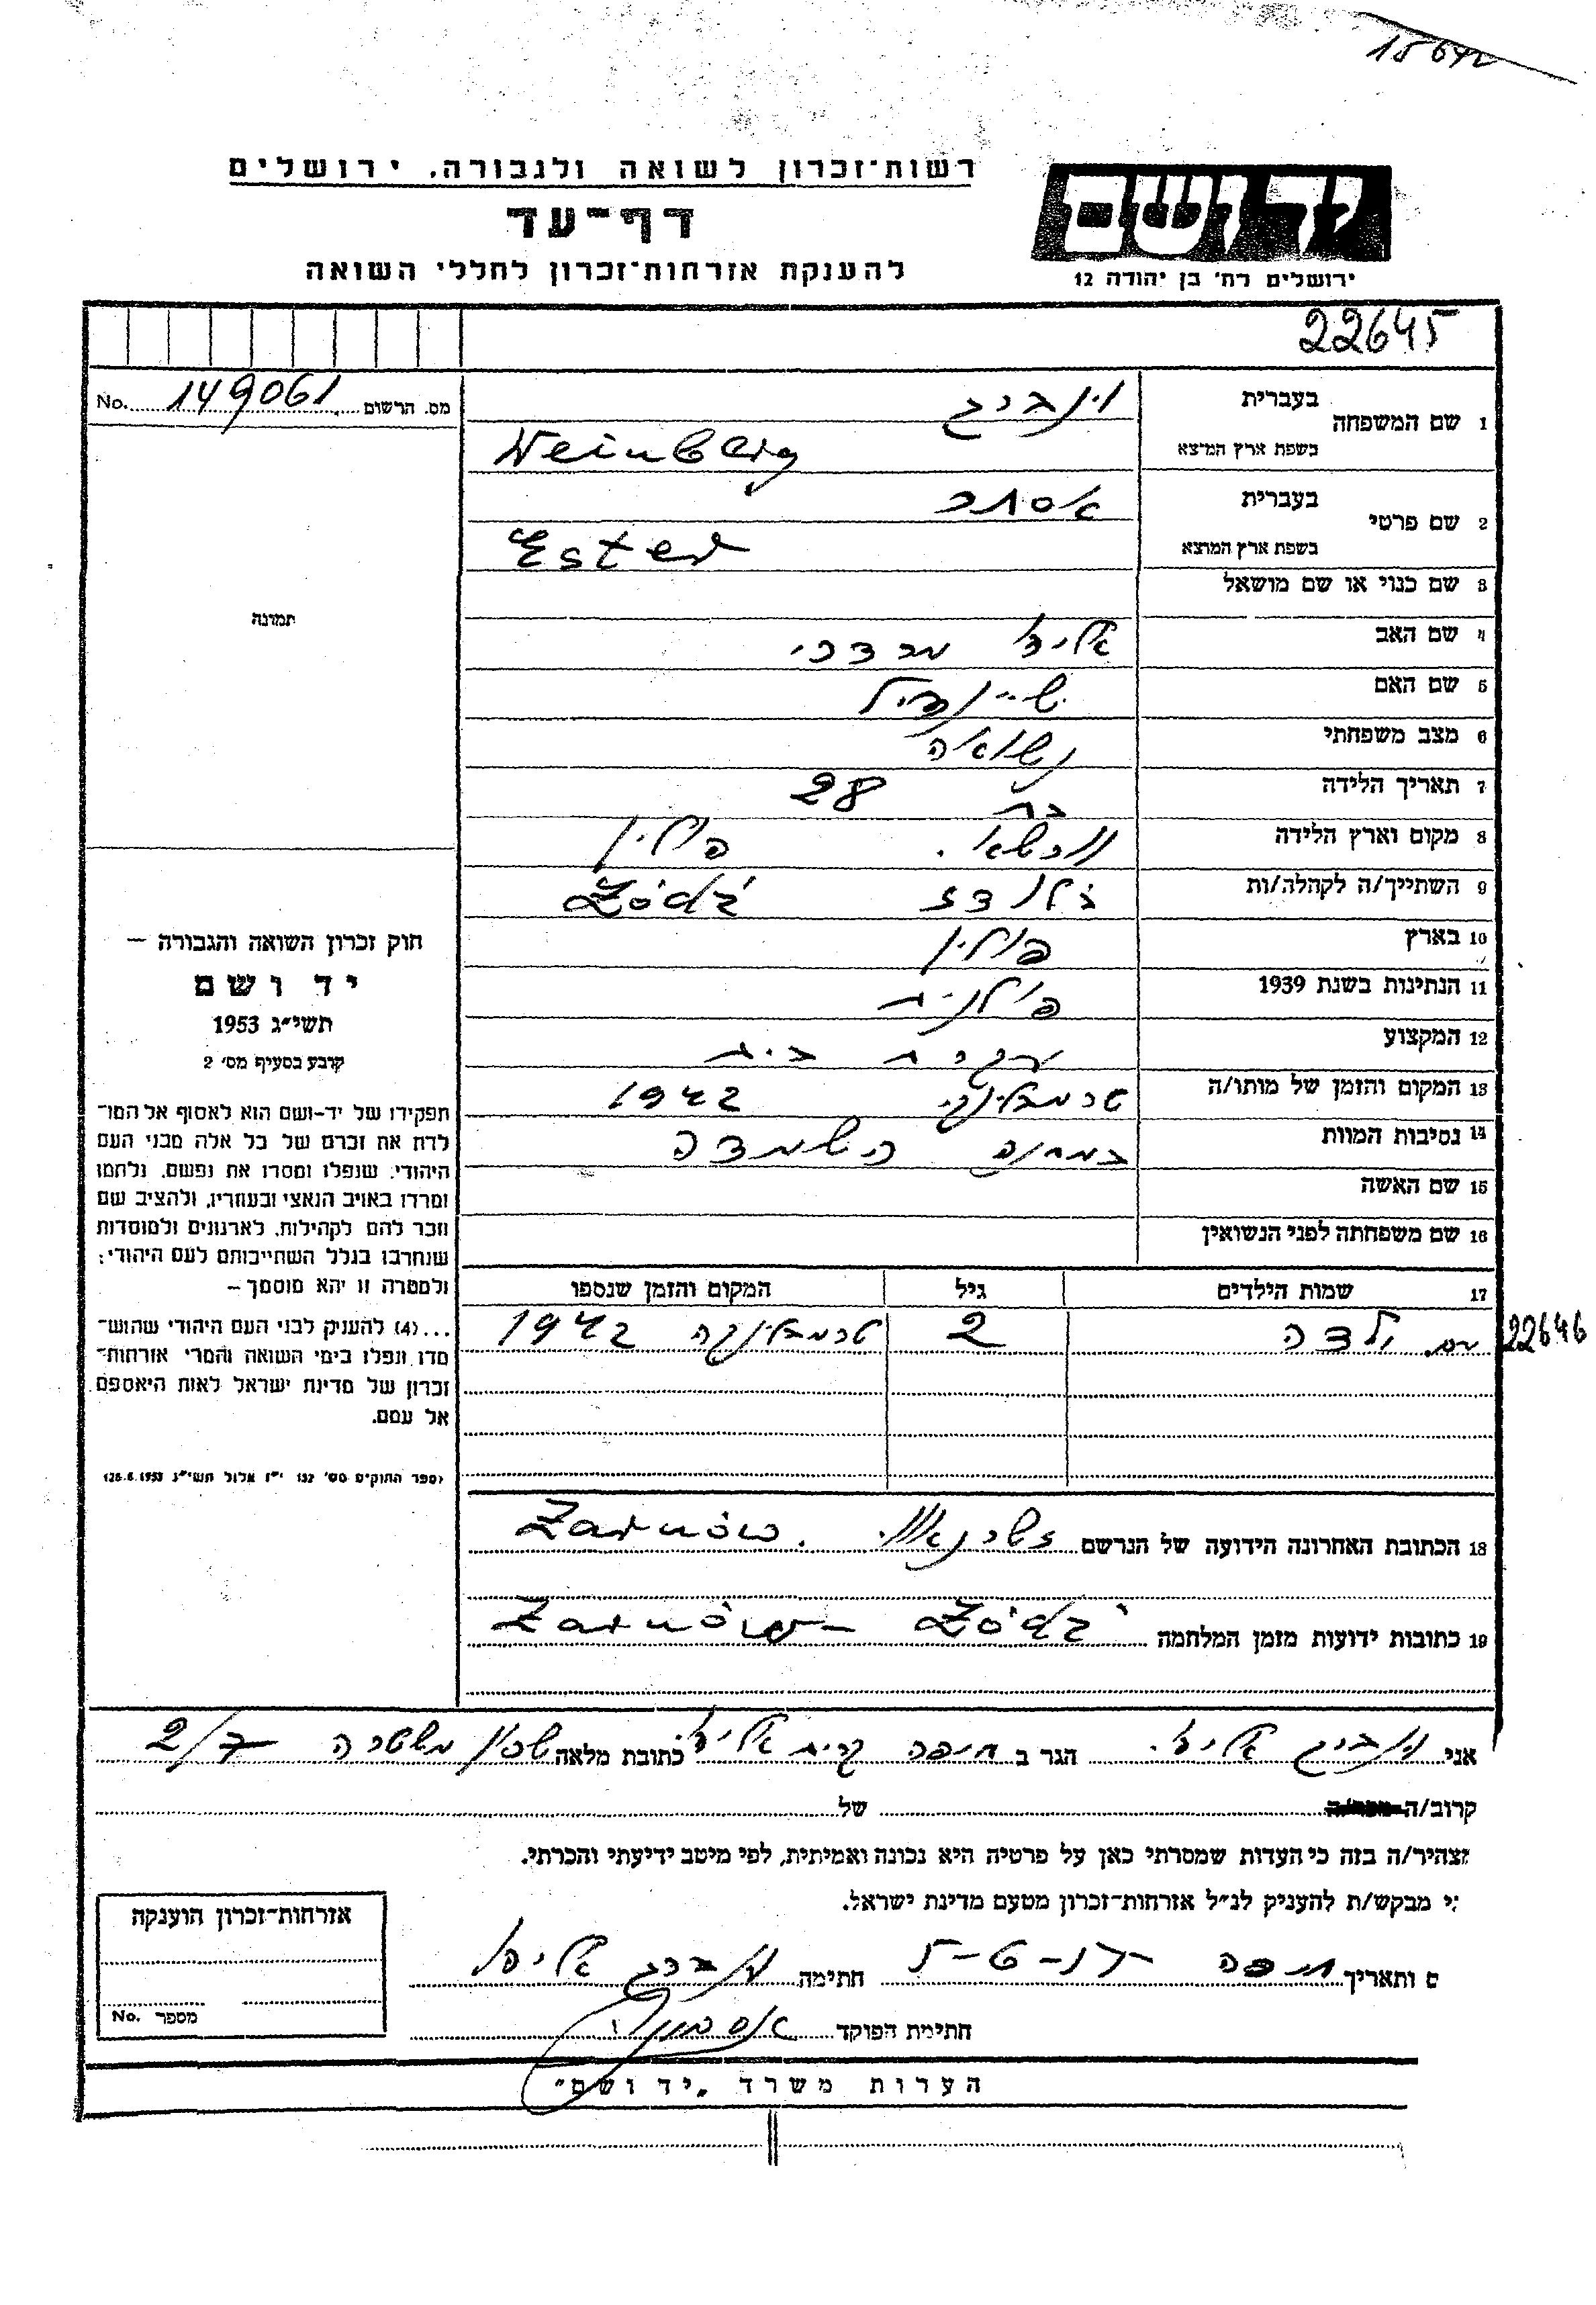 15642
רשות־זכרון לשואה ולגבורה, ירושלים
יד ושם
דף־עד
להענקת אזרחות־זכרון לחללי השואה
ירושלים רח׳ בן יהודה 12
22645
1 שם המשפחה בעברית וינברג
בשפת ארץ המוצא Weinberg
מס. הרשום 149061 No.
2 שם פרטי בעברית אסתר
בשפת ארץ המוצא Ester
3 שם כנוי או שם מושאל
תמונה
4 שם האב מרדכי
5 שם האם שיינדיל
6 מצב משפחתי נשואה
7 תאריך הלידה בת 28
8 מקום וארץ הלידה פולין
9 השתייך/ה לקהלה/ות לודז Łódź
10 בארץ פולין
11 הנתינות בשנת 1939 פולנית
12 המקצוע עקרת בית
13 המקום והזמן של מותו/ה טרמבלינקי 1942
14 נסיבות המוות במחנה השמדה
15 שם האשה
16 שם משפחתה לפני הנשואין
חוק זכרון השואה והגבורה –
יד ושם
תשי״ג 1953
קובע בסעיף מס׳ 2
תפקידו של יד-ושם הוא לאסוף אל המו־
לדת את זכרם של כל אלה מבני העם
היהודי, שנפלו ומסרו את נפשם, נלחמו
ומרדו באויב הנאצי ובעוזריו, ולהציב שם
וזכר להם לקהילות, לארגונים ולמוסדות
שנחרבו בגלל השתייכותם לעם היהודי;
ולמטרה זו יהא מוסמך –
...(4) להעניק לבני העם היהודי שהוש־
מדו ונפלו בימי השואה והמרי אזרחות־
זכרון של מדינת ישראל לאות היאספם
אל עמם.
(ספר החוקים מס׳ 132 י״ז אלול תשי״ג 28.8.1953)
17 שמות הילדים גיל המקום והזמן שנספו
ילדה 2 טרמבלינקה 1942
22646
18 הכתובת האחרונה הידועה של הנרשם Żarnów
19 כתובות ידועות מזמן המלחמה Łódź – Żarnów
אני וינברג הגר ב חיפה קרית אליעזר כתובת מלאה שכון משטרה 2/7
קרוב/ה של
מצהיר/ה בזה כי העדות שמסרתי כאן על פרטיה היא נכונה ואמיתית, לפי מיטב ידיעתי והכרתי.
י מבקש/ת להעניק לנ״ל אזרחות־זכרון מטעם מדינת ישראל.
ם ותאריך חיפה חתימה וינברג
חתימת הפוקד
אזרחות־זכרון הוענקה
מספר No.
הערות משרד „יד ושם״